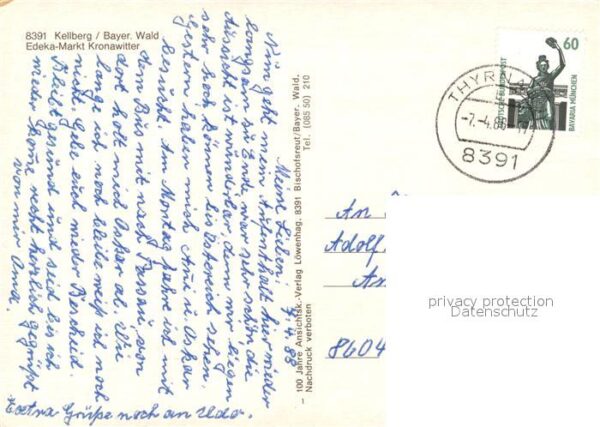 8391 Kellberg / Bayer. Wald
Edeka-Markt Kronawitter
Meine Lieben! 7.4.88
Nun geht mein Aufenthalt hier wieder
langsam zu Ende, war sehr schön die
Aussicht ist wunderbar, denn wir liegen
sehr hoch können bis Österreich sehen.
Gestern haben mich u Oskar
besucht. Am Montag fahre ich mit
dem Bus mit nach Passau, von
dort holt mich Oskar ab. Wie
lange ich noch bleibe weiß ich noch
nicht. Gebe euch wieder Bescheid.
Bleibt gesund und seid bis ich
wieder komme recht herzlich gegrüßt
von mir Oma.
Extra Grüße noch an Udo.
100 Jahre Ansichtsk.-Verlag Löwenhag, 8391 Bischofsreut/Bayer. Wald.
Nachdruck verboten Tel. (085 50) 210
1
60
DEUTSCHE BUNDESPOST
BAVARIA MÜNCHEN
THYRNAU
-7.-4.88
8391
An
Adolf
An
8604
privacy protection
Datenschutz